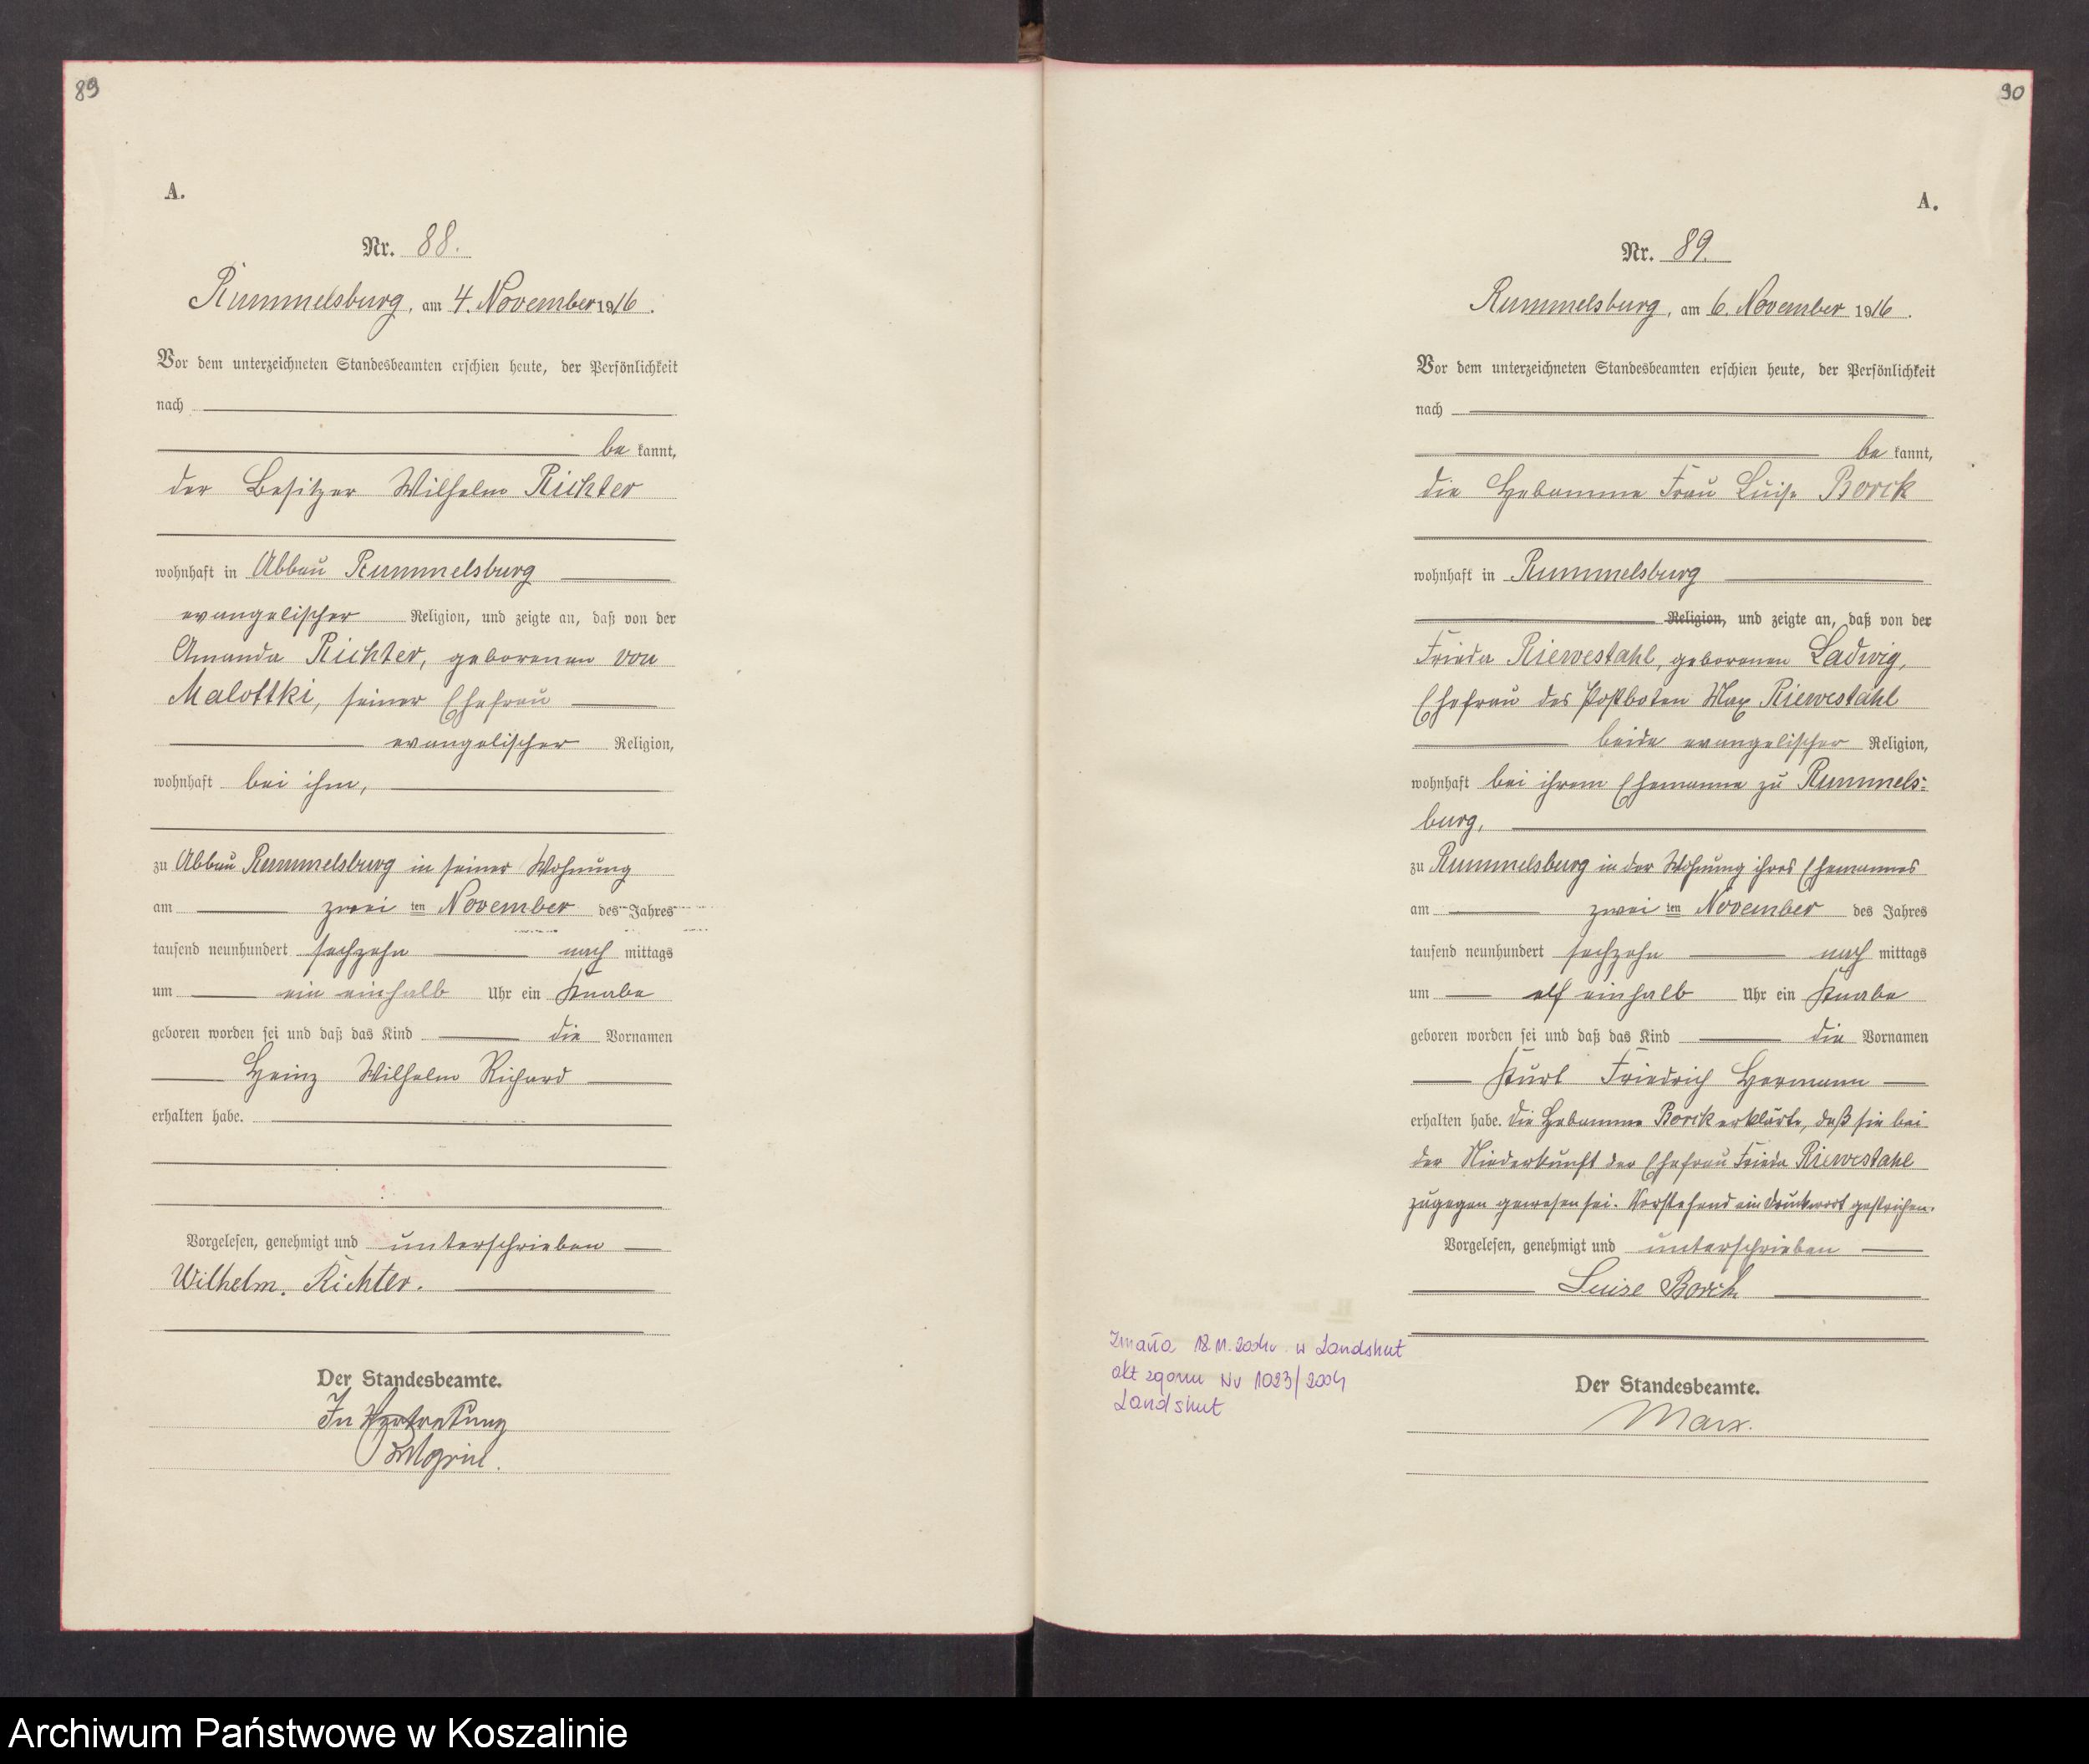 89
A.
Nr. 88.
Rummelsburg, am 4. November 1916.
Vor dem unterzeichneten Standesbeamten erschien heute, der Persönlichkeit
nach
be kannt,
der Besitzer Wilhelm Richter
wohnhaft in Abbau Rummelsburg
evangelischer Religion, und zeigte an, daß von der
Amanda Richter, geborenen von
Malottki, seiner Ehefrau
evangelischer Religion,
wohnhaft bei ihm,
zu Abbau Rummelsburg in seiner Wohnung
am zwei ten November des Jahres
tausend neunhundert sechzehn nach mittags
um ein einhalb Uhr ein Knabe
geboren worden sei und daß das Kind die Vornamen
Heinz Wilhelm Richard
erhalten habe.
Vorgelesen, genehmigt und unterschrieben
Wilhelm. Richter.
Der Standesbeamte.
In Vertretung
90
A.
Nr. 89.
Rummelsburg, am 6. November 1916.
Vor dem unterzeichneten Standesbeamten erschien heute, der Persönlichkeit
nach
be kannt,
die Hebamme Frau Luise Borck
wohnhaft in Rummelsburg
Religion, und zeigte an, daß von der
Frieda Riewestahl, geborenen Ladwig,
Ehefrau des Postboten Max Riewestahl
beide evangelischer Religion,
wohnhaft bei ihrem Ehemanne zu Rummels-
burg,
zu Rummelsburg in der Wohnung ihres Ehemannes
am zwei ten November des Jahres
tausend neunhundert sechzehn nach mittags
um elf einhalb Uhr ein Knabe
geboren worden sei und daß das Kind die Vornamen
Kurt Friedrich Hermann
erhalten habe. Die Hebamme Borck erklärte, daß sie bei
der Niederkunft der Ehefrau Frieda Riewestahl
zugegen gewesen sei. Vorstehend ein Druckwort gestrichen.
Vorgelesen, genehmigt und unterschrieben
Luise Borck
Zmarła 18.11.2004r. w Landshut
akt zgonu Nr 1023/2004
Landshut
Der Standesbeamte.
Marx.
Archiwum Państwowe w Koszalinie